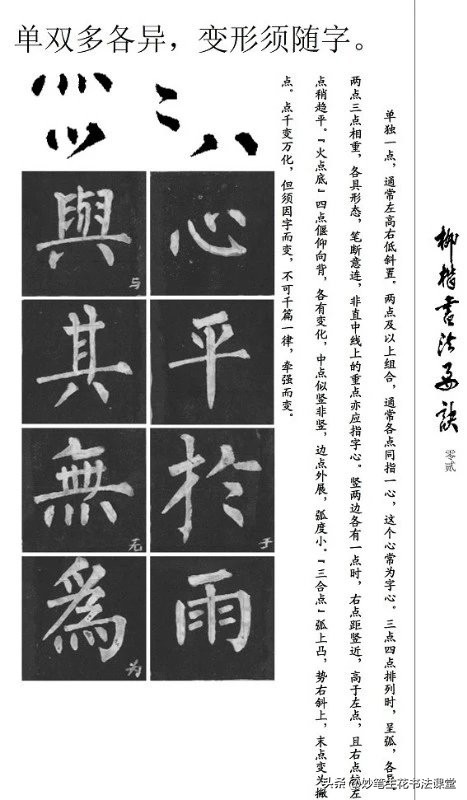 单双多各异，变形须随字。
柳楷書法要訣
零贰
单独一点，通常左高右低斜置。两点及以上组合，通常各点同指一心，这个心常为字心。三点四点排列时，呈弧，各异。
两点三点相重，各具形态，笔断意连，非直中线上的重点亦应指字心。竖两边各有一点时，右点距竖近，高于左点，且右点较左
点稍趋平。『火点底』四点偃仰向背，各有变化，中点似竖非竖，边点外展，弧度小。『三合点』弧上凸，势右斜上，末点变头撇
点。点千变万化，但须因字而变，不可千篇一律，牵强而变。
心
平
於
于
雨
與
与
其
無
无
爲
为
头条 @妙笔生花书法课堂